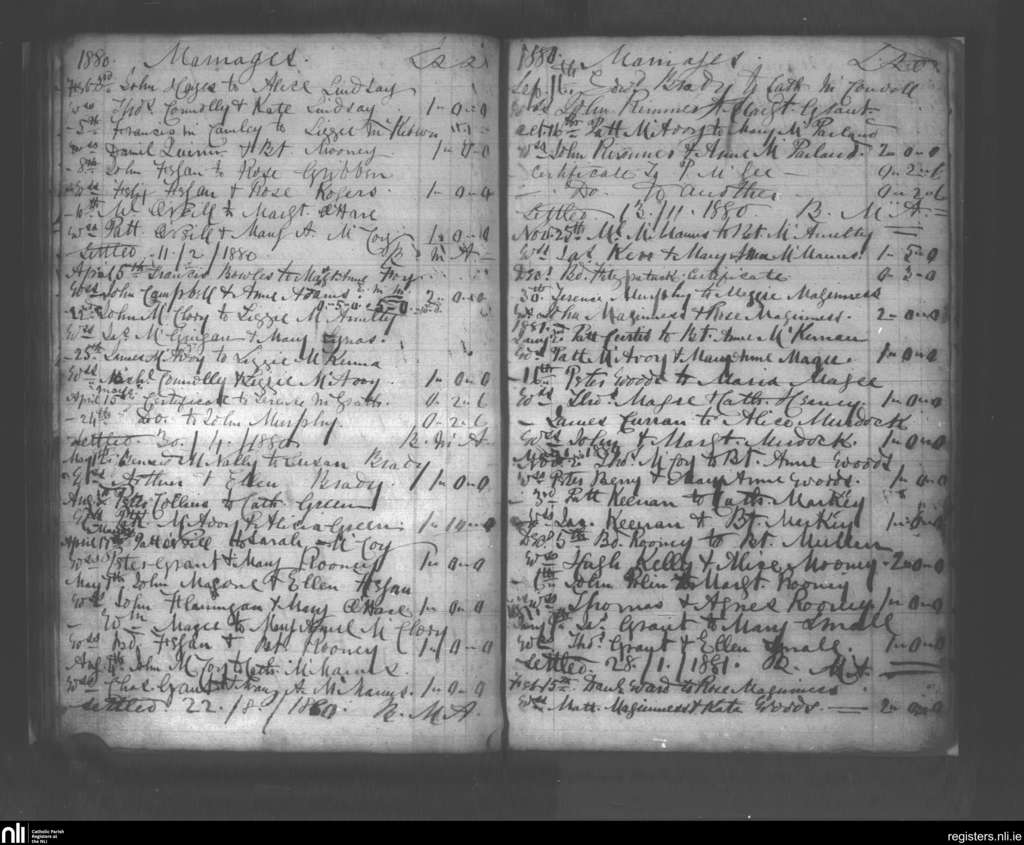 1880. Marriages. £ s d
Feb 3rd John Hayes to Alice Lindsay
Wss Thos Connolly & Kate Lindsay 1-0-0
- 5th Francis McCauley to Lizzie McKeown
Wss Daniel Quinn & Bt. Mooney 1-0-0
- 8th John Fegan to Rose Gribbin
Wss Felix Fegan & Rose Rogers 1-0-0
- Ml O'Neill to Margt. O'Hare
Wss Patt O'Neill & Mary A McCoy 1-0-0
Settled 11/2/1880 M A
April 5th Francis Bowles to
Wss John Campbell & Anne Adams 2-0-0
John McClory to Lizzie McAnulty
Wss McGuigan & Mary
- 28th James McAvoy to Lizzie McKenna
Wss Michl Connolly & Lizzie McAvoy 1-0-0
April 15th Certificate to Terence McGrath 0-2-6
- 24th Do. to John Murphy 0-2-6
Settled 30/4/1880 R. M A
May McNally to Susan Brady
Wss Arthur & Ellen Brady 1-0-0
Aug Peter Collins to Cath. Green
Wss McAvoy & Alicia Green 1-10-0
April Patt O'Neill to Sarah McCoy
Wss Peter Grant & Mary Rooney 1-0-0
May John Magone & Ellen Fegan
Wss John Flannigan & Mary O'Hare 1-0-0
- Wm Magee to Mary McClory
Wss Fegan & Rooney 1-0-0
Aug John McCoy to Cath. McManus
Wss Chas Grant & Mary A. McManus. 1-0-0
Settled 22/8/1880 R. M A.
1880. Marriages. £ s d
Sep. 11th Edwd Brady to Cath
Wss John Rimmer & Margt Grant
Oct 16th Patt McAvoy to Mary McParland
Wss John Rimmer & Anne McParland. 2-0-0
Certificate to P. McGee 0-2-6
- Do. to another 0-2-6
Settled 13/11.1880 R. M A
Nov. 25th McManus to Bt. McAnulty
Wss Jas Kerr & Mary Anna McManus 1-5-0
Dec. Bd. Fitzpatrick Certificate 0-3-0
30th Terence Murphy to Meggie Maginness
Wss John Maginness & Rose Maginness. 2-0-0
1881 Patt Curtis to Bt. Anne McKernan
Wss Patt McAvoy & Mary Anne Magee 1-0-0
- 11th Peter Woods to Maria Magee
Wss Thos. Magee & Cath. Heaney. 1-0-0
- James Curran to Alice Murdock
Wss John & Margt. Murdock. 1-0-0
Thos. McCoy to Bt. Anne Woods
Wss Peter Berry & Mary Anne Woods. 1-0-0
- 3rd Patt Keenan to Cath. Markey
Wss Jas. Keenan & Bt. Markey 1-0-0
Dec 5th Bd. Rooney to Bt. Mullen
Wss Hugh Kelly & Alice Mooney 2-0-0
- John to Margt Rooney
Wss Thomas & Agnes Rooney 1-0-0
Jas Grant to Mary Small
Wss Thos. Grant & Ellen Small. 1-0-0
Settled 28/1/1881. R. M A
Feb 15th Danl Ward to Rose Maginness
Wss Matt. Maginness & Kate Woods. 2-0-0
nli Catholic Parish
Registers at
the NLI
registers.nli.ie